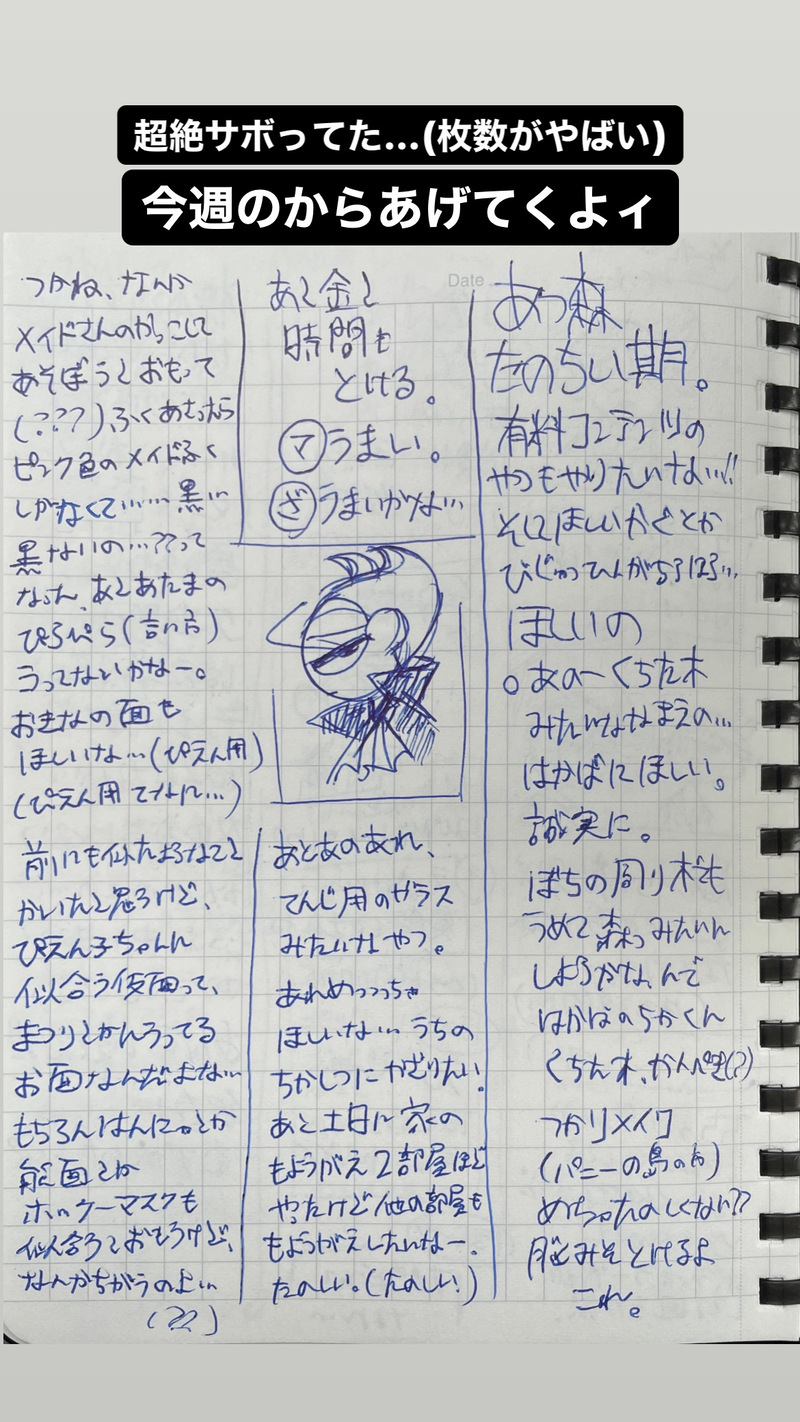 超絶サボってた…(枚数がやばい)
今週のからあげてくよィ
Date
あつ森
たのちい期。
有料コンテンツの
やつもやりたいなぃ!!
そしてほしいかぐとか
びじゅつひんがちらほら…
ほしいの
○あの一くちた木
みたいななまえの…
はかばにほしい。
誠実に。
ぼちの周り木でも
うめて森っみたいに
しようかな、んで
はかばのちかくに
くちた木、かんぺき(?)
つかリメイク
(パニーの島の方)
めちゃたのしくない??
脳みそとけるよ
これ。
あと金と
時間も
とける。
マ うまい。
ざ うまいがよ…
あとあのあれ、
てんじ用のガラス
みたいなやつ。
あれめっっっちゃ
ほしいな… うちの
ちかしつにかざりたい。
あと土日に家の
もようがえ2部屋ほど
やったけど他の部屋も
もようがえしたいなー。
たのしい。(たのしい)
つかね、なんか
メイドさんのかっこして
あそぼうとおもって
(???)ふくあさったら
ピンク色のメイドふく
しかなくて……黒い
黒ないの…??って
なった、あとあたまの
ぴらぴら(言い方)
うってないかなー。
おきなの面も
ほしいな…(ぴえん用)
(ぴえん用てなに…)
前にも似たようなこと
かいたと思うけど、
ぴえん子ちゃんに
似合う仮面って、
まつりとかんうってる
お面なんだよな…
もちろんはんにゃとか
能面とか
ホッケーマスクも
似合うとおもうけど、
なんかちがうのよ…